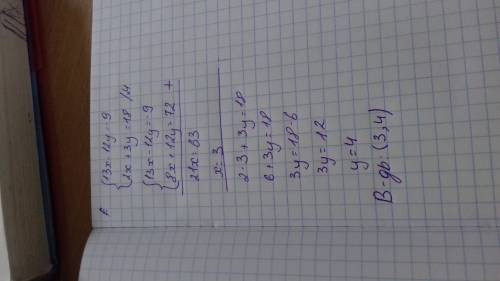 {13x-12y=-9
{2x+3y=18 /·4
{13x-12y=-9
{8x+12y=72 +
21x=63
x=3
2·3+3y=18
6+3y=18
3y=18-6
3y=12
y=4
В-дь: (3;4)